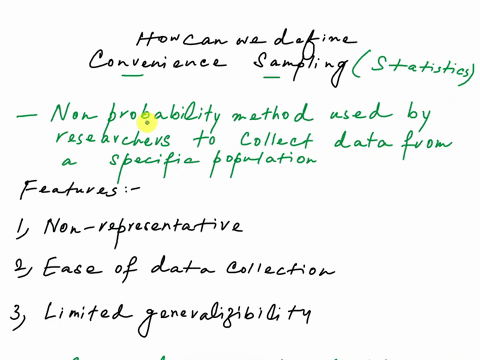 How can we define
Convenience Sampling (Statistics)
— Non probability method used by
researchers to collect data from
a specific population
Features:-
1, Non-representative
2, Ease of data collection
3, Limited generaligibility